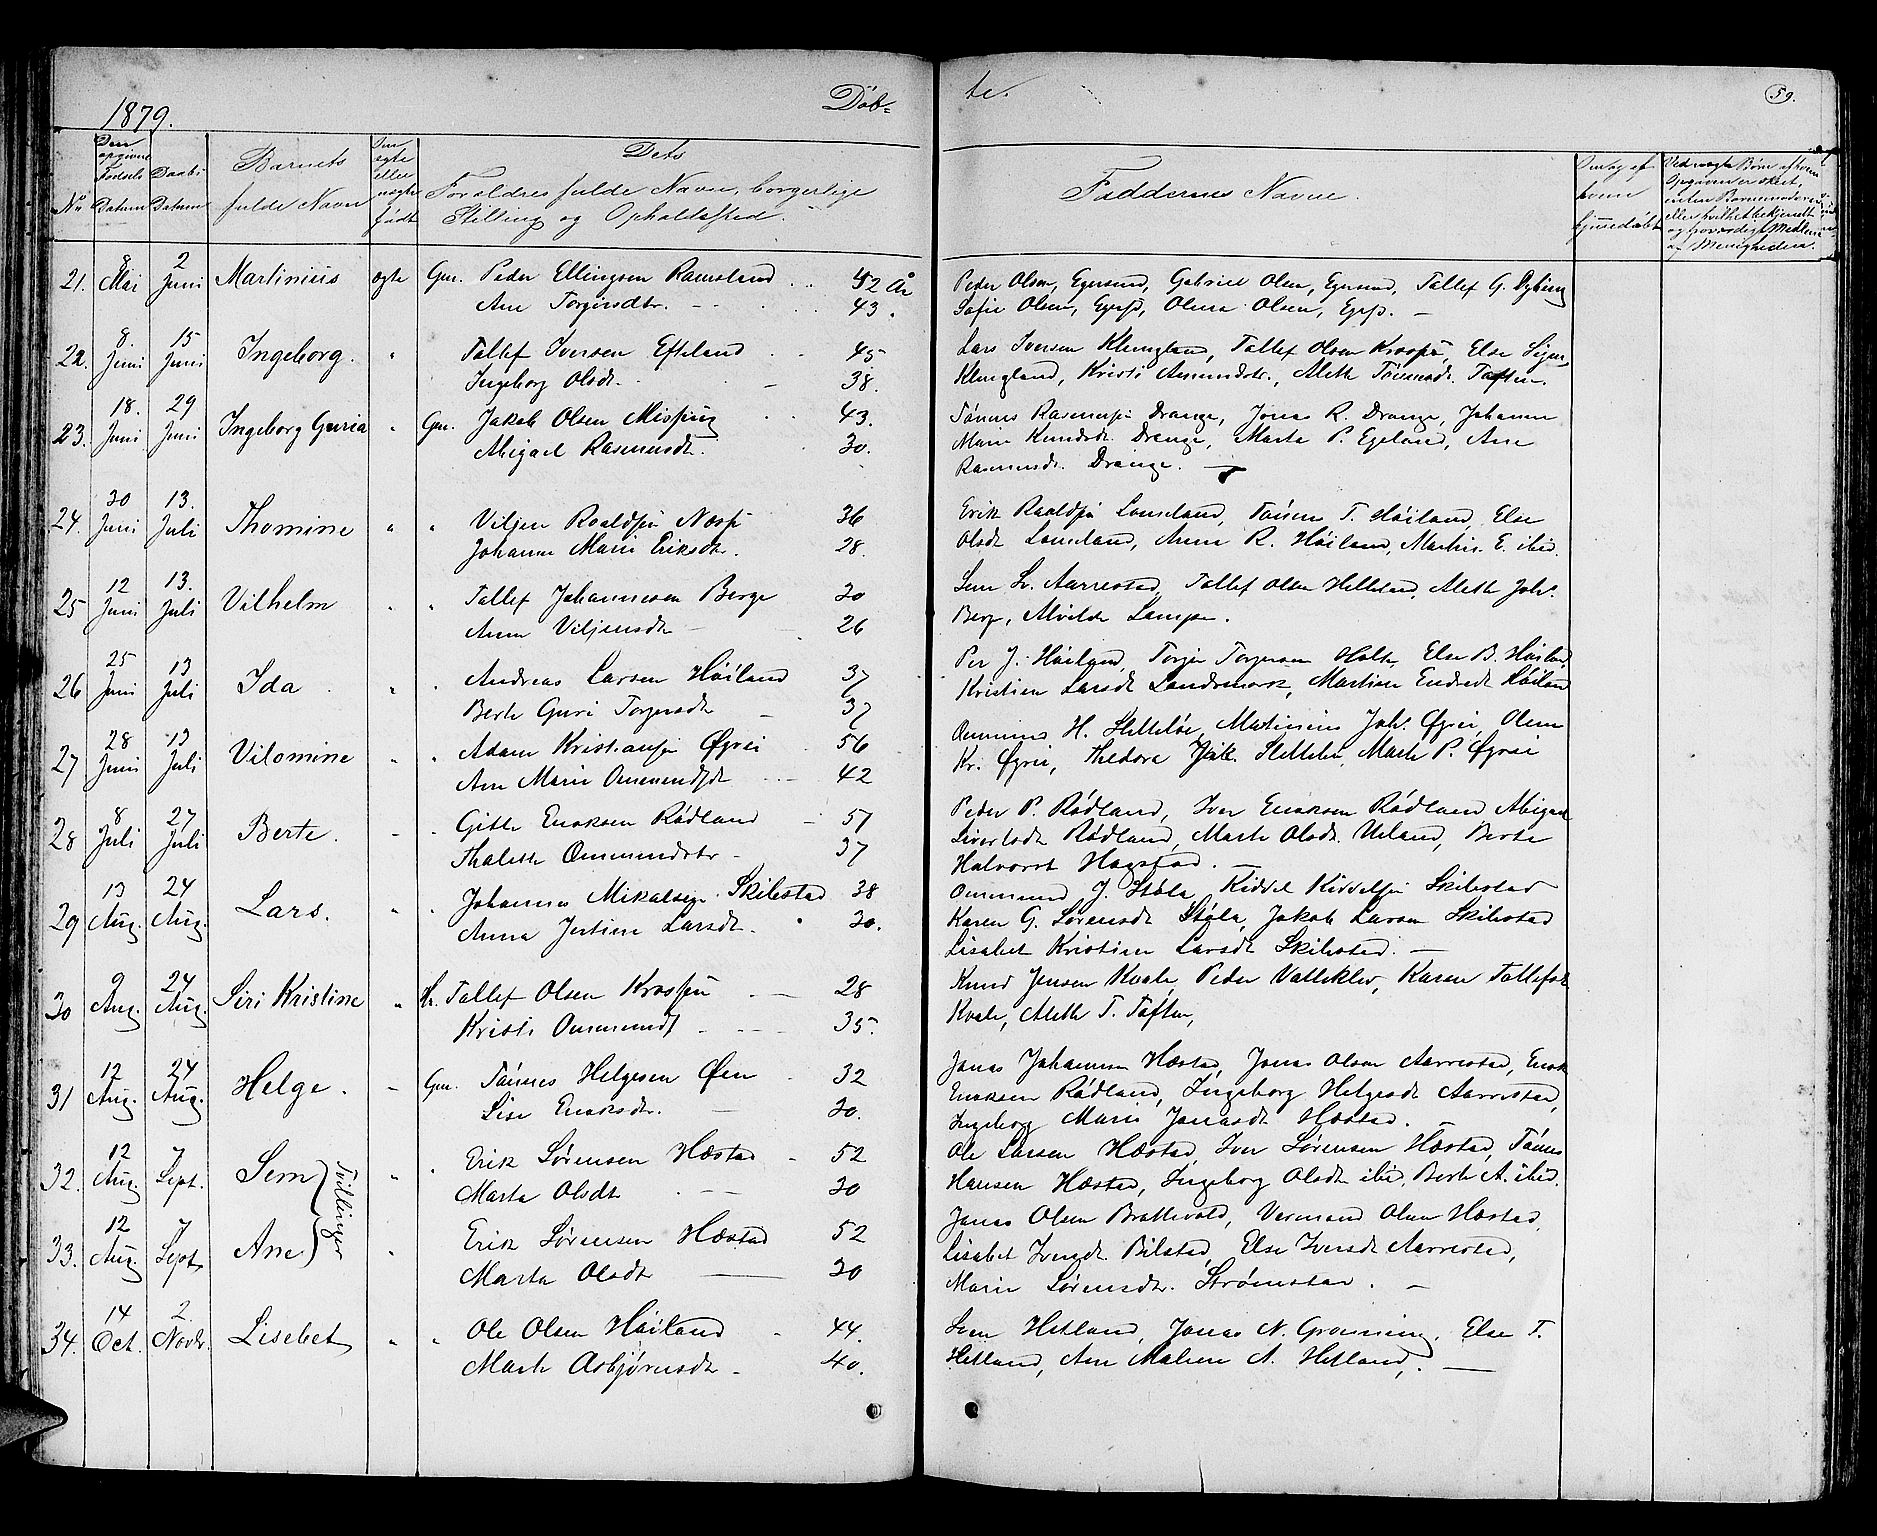 1879.
Døb=
te.
59.
No
Den opgivne Fødsels Datum
Daabs Datum
Barnets fulde Navn
Om ægte eller uægte født
Dets
Forældres fulde Navn, borgerlige
Stilling og Opholdssted.
Faddernes Navne.
21. 8 Mai 2 Juni Martinius ægte Gm. Peder Ellingsen Ramsland 42 År
Ane Torgersdtr. 43.
Peder Olsen, Egersund, Gabriel Olsen, Egersund, Tallef G. Dybing
Sofie Olsen, Egers, Olena Olsen, Egers.
22. 8. Juni 15 Juni Ingeborg. " Tallef Iversen Efteland 45
Ingeborg Olsdt. 38.
Lars Iversen Klungland, Tallef Olsen Krossen, Else
Klungland, Kristi Amundstr., Aleth Tønnesdt. Taften.
23. 18. Juni 29 Juni Ingeborg Guria " Gm. Jakob Olsen 43.
Abigael Rasmusdt. 30.
Tønnes Rasmussen Drange, Jonas R. Drange, Johanne
Marie Knudsdt. Drange, Marta P. Egeland, Ane
Rasmusdt. Drange.
24. 30 Juni 13. Juli Thomine " " Viljen Roaldsen 36
Johanne Marie Eriksdtr. 28.
Erik Roaldsen Lonseland, Tønnes T. Høiland, Else
Olsdt Lonseland, Anna R. Høiland, E. ibid.
25 12 Juni 13. Juli Vilhelm " " Tallef Johannesen Berge 30
Anna Viljensdt 26
Sem Aarrestad, Tallef Olsen Helleland, Aleth Joh.
Berg, Alvilde Lampe.
26 25 Juni 13 Juli Ida " " Andreas Larsen Høiland 37
Berte Guri Torgersdt 37
Per J. Høiland, Torger Torgersen Holte, Else B. Høiland
Kristine Larsdt Landsmark, Martine Endredt Høiland
27 28 Juni 13 Juli Vilomine " " Adam Kristiansen Øgrei 56
Ane Marie Ommundsdt 42
Ommund H. Slettebø, Martinius Joh. Øgrei, Olene
Kr. Øgrei, Theodora Jak. Slettebø, Marte P. Øgrei
28 8 Juli 27 Juli Berte. " " Gitle Eriksen Rødland 57
Thalette Ommundsdtr 37
Peder P. Rødland, Iver Eriksen Rødland Abigael
Sivertsdt Rødland, Marte Olsdt. Ueland, Berte
Halvorst Hagstad.
29 13 Aug. 24 Aug. Lars. " " Johannes Mikalsen Skibestad 38
Anna Justine Larsdt. 30.
Ommund J. Støla, Kiddel Kiddelsen Skibestad
Karen G. Sørensdt Støla, Jakob Larsen Skibestad
Lisabet Kristine Larsdt Skibestad.
30 9 Aug. 24 Aug. Siri Kristine " Tallef Olsen Krossen 28
Kristi Ommunds 35.
Knud Jensen Kvale, Peder Vatteklev, Karen Tallefsdt
Kvale, Aleth T. Taften,
31 12 Aug. 24 Aug. Helge. " Gm. Tønnes Helgesen Øen 32
Lise Eriksdtr. 30.
Jonas Johannesen Hæstad, Jonas Olsen Aarrestad, Erik
Eriksen Rødland, Ingeborg Helgesdt Aarrestad,
Ingeborg Marie Jonasdt Hæstad.
32. 12 Aug. 7 Sept. Sem } Tvillinger " " Erik Sørensen Hæstad 52
Marta Olsdt 30
Ole Larsen Hæstad, Iver Sørensen Hæstad, Tønnes
Hansen Hæstad, Ingeborg Olsdt ibid, Berte A. ibid.
33. 12 Aug. 7 Sept. Ane } " Erik Sørensen Hæstad 52
Marta Olsdt 30
Jonas Olsen Brattevold, Vermund Olsen Hæstad,
Lisabet Bilstad, Else Iversdt Aarrestad,
Marie Sørensdtr. Strømstad.
34. 14 Oct. 2. Novbr. Lisebet " " Ole Olsen Høiland 44.
Marte Asbjørnsdt 40.
Sven Hetland, Jonas N. Grøsning, Else T.
Hetland, Ane Malene A. Hetland,